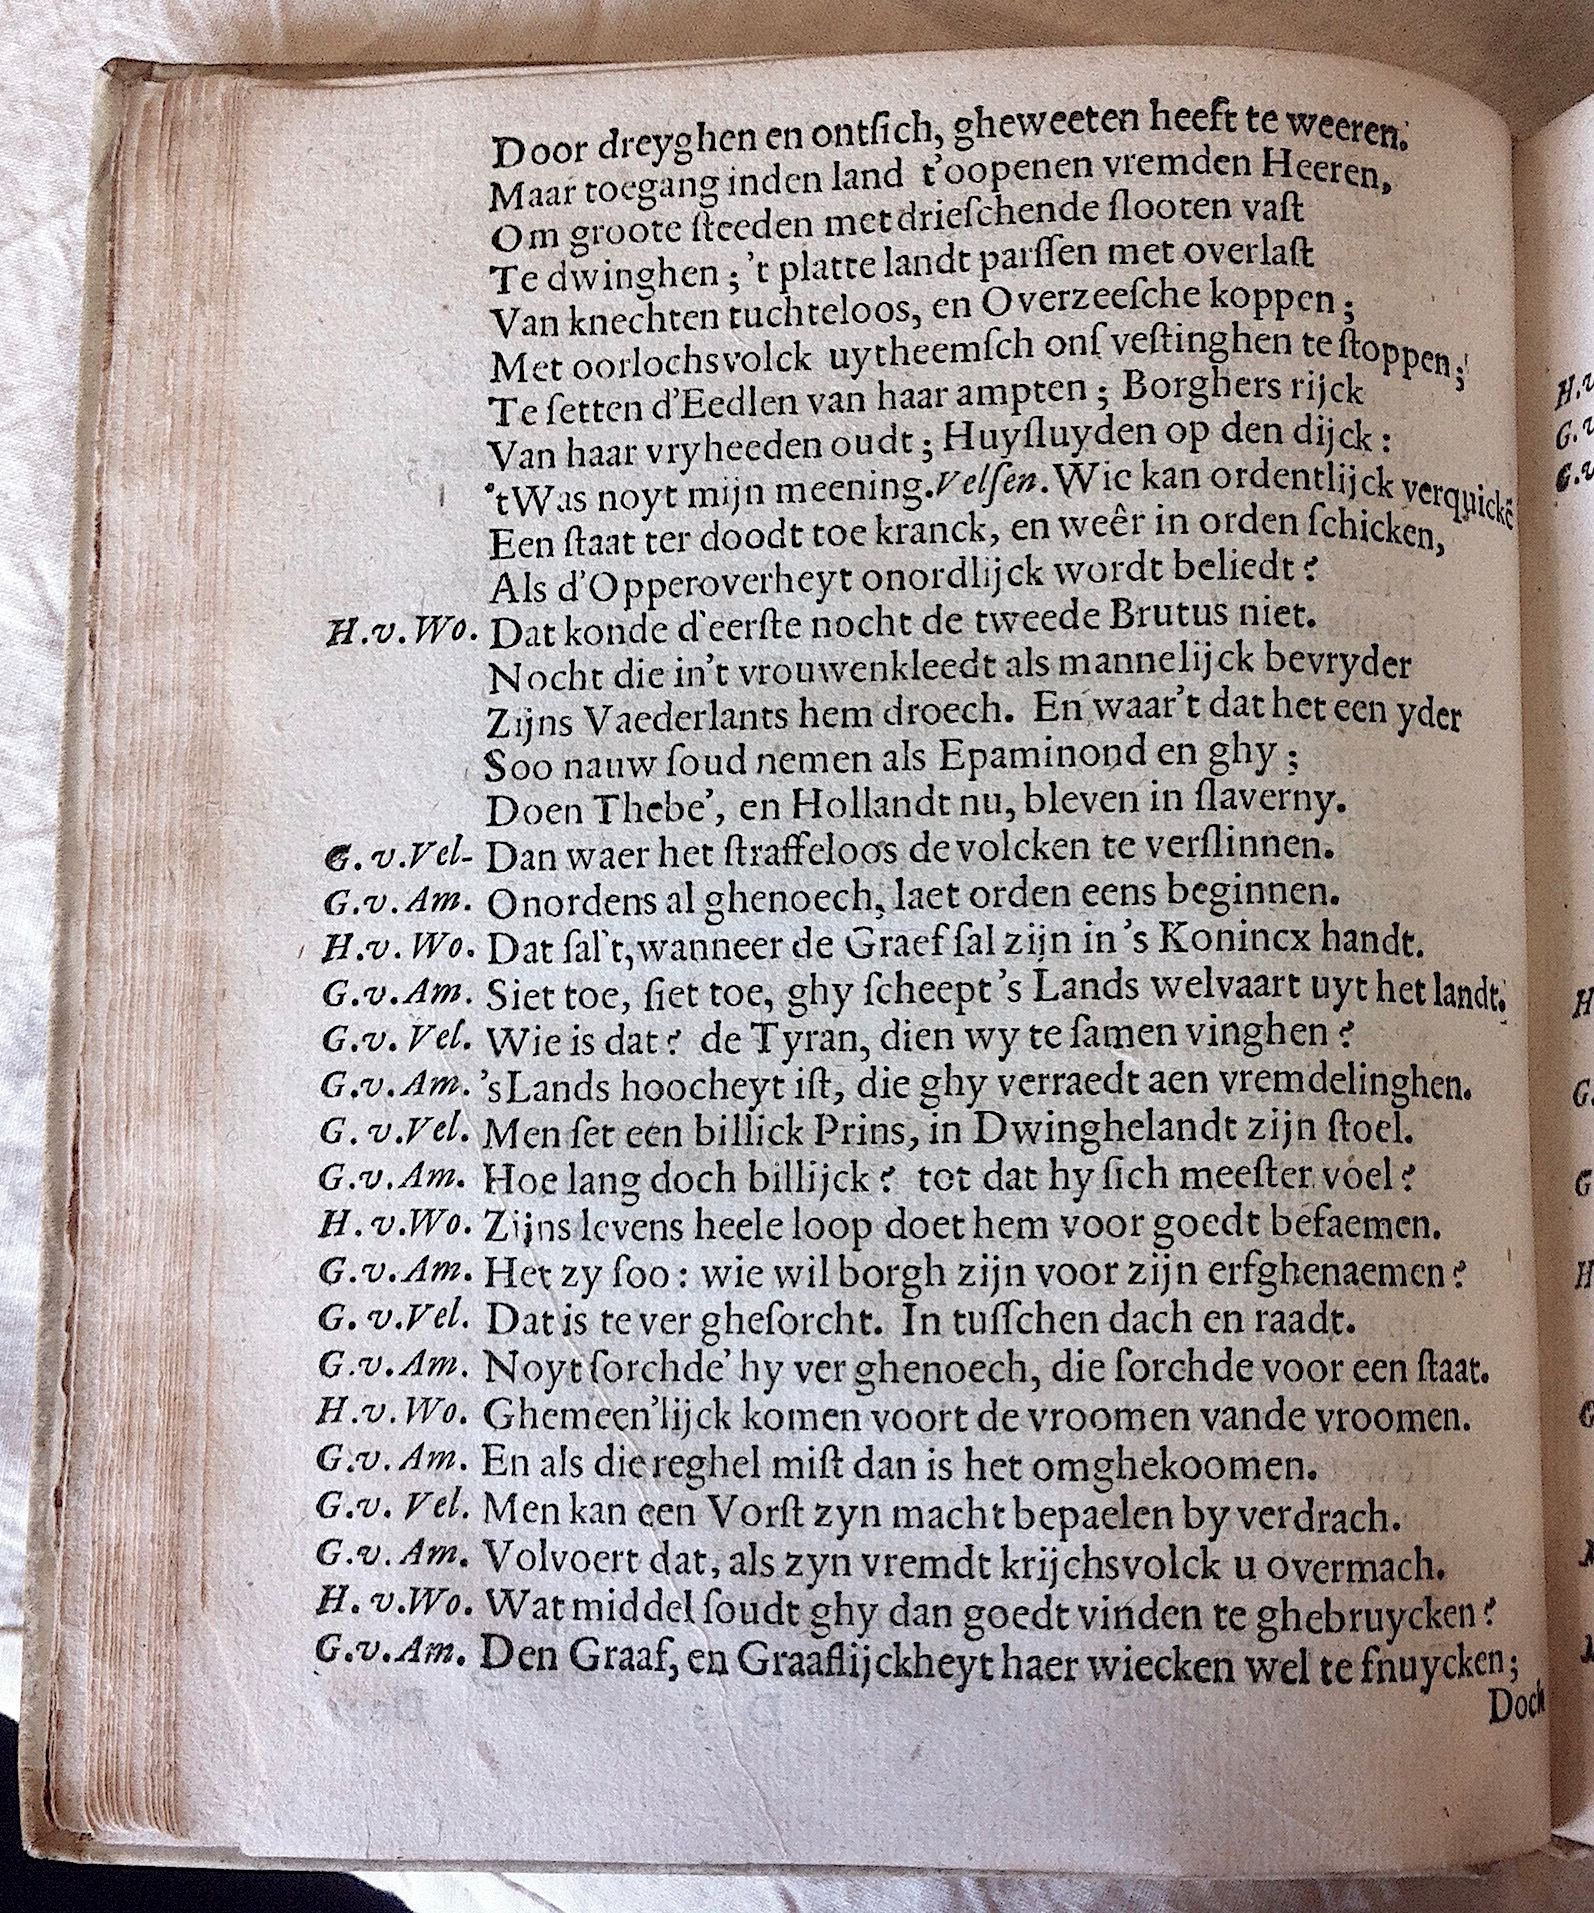 Door dreyghen en ontſich, gheweeten heeft te weeren.
Maar toegang inden land t'oopenen vremden Heeren,
Om groote ſteeden met drieſchende ſlooten vaſt
Te dwinghen; 't platte landt parſſen met overlaſt
Van knechten tuchteloos, en Overzeeſche koppen;
Met oorlochsvolck uytheemſch onſ veſtinghen te ſtoppen;
Te ſetten d'Eedlen van haar ampten; Borghers rijck
Van haar vryheeden oudt; Huyſluyden op den dijck:
'tWas noyt mijn meening. Velſen. Wie kan ordentlijck verquickē
Een ſtaat ter doodt toe kranck, en weêr in orden ſchicken,
Als d'Opperoverheyt onordlijck wordt beliedt?
H.v.Wo. Dat konde d'eerſte nocht de tweede Brutus niet.
Nocht die in't vrouwenkleedt als mannelijck bevryder
Zijns Vaederlants hem droech. En waar't dat het een yder
Soo nauw ſoud nemen als Epaminond en ghy;
Doen Thebe', en Hollandt nu, bleven in ſlaverny.
G.v.Vel- Dan waer het ſtraffeloos de volcken te verſlinnen.
G.v.Am. Onordens al ghenoech, laet orden eens beginnen.
H.v.Wo. Dat ſal't, wanneer de Graef ſal zijn in 's Konincx handt.
G.v.Am. Siet toe, ſiet toe, ghy ſcheept 's Lands welvaart uyt het landt.
G.v.Vel. Wie is dat? de Tyran, dien wy te ſamen vinghen?
G.v.Am. 'sLands hoocheyt iſt, die ghy verraedt aen vremdelinghen.
G.v.Vel. Men ſet een billick Prins, in Dwinghelandt zijn ſtoel.
G.v.Am. Hoe lang doch billijck? tot dat hy ſich meeſter voel?
H.v.Wo. Zijns levens heele loop doet hem voor goedt befaemen.
G.v.Am. Het zy ſoo: wie wil borgh zijn voor zijn erfghenaemen?
G.v.Vel. Dat is te ver gheſorcht. In tuſſchen dach en raadt.
G.v.Am. Noyt ſorchde' hy ver ghenoech, die ſorchde voor een ſtaat.
H.v.Wo. Ghemeen'lijck komen voort de vroomen vande vroomen.
G.v.Am. En als die reghel miſt dan is het omghekoomen.
G.v.Vel. Men kan een Vorſt zyn macht bepaelen by verdrach.
G.v.Am. Volvoert dat, als zyn vremdt krijchsvolck u overmach.
H.v.Wo. Wat middel ſoudt ghy dan goedt vinden te ghebruycken?
G.v.Am. Den Graaf, en Graaflijckheyt haer wiecken wel te fnuycken;
Doch